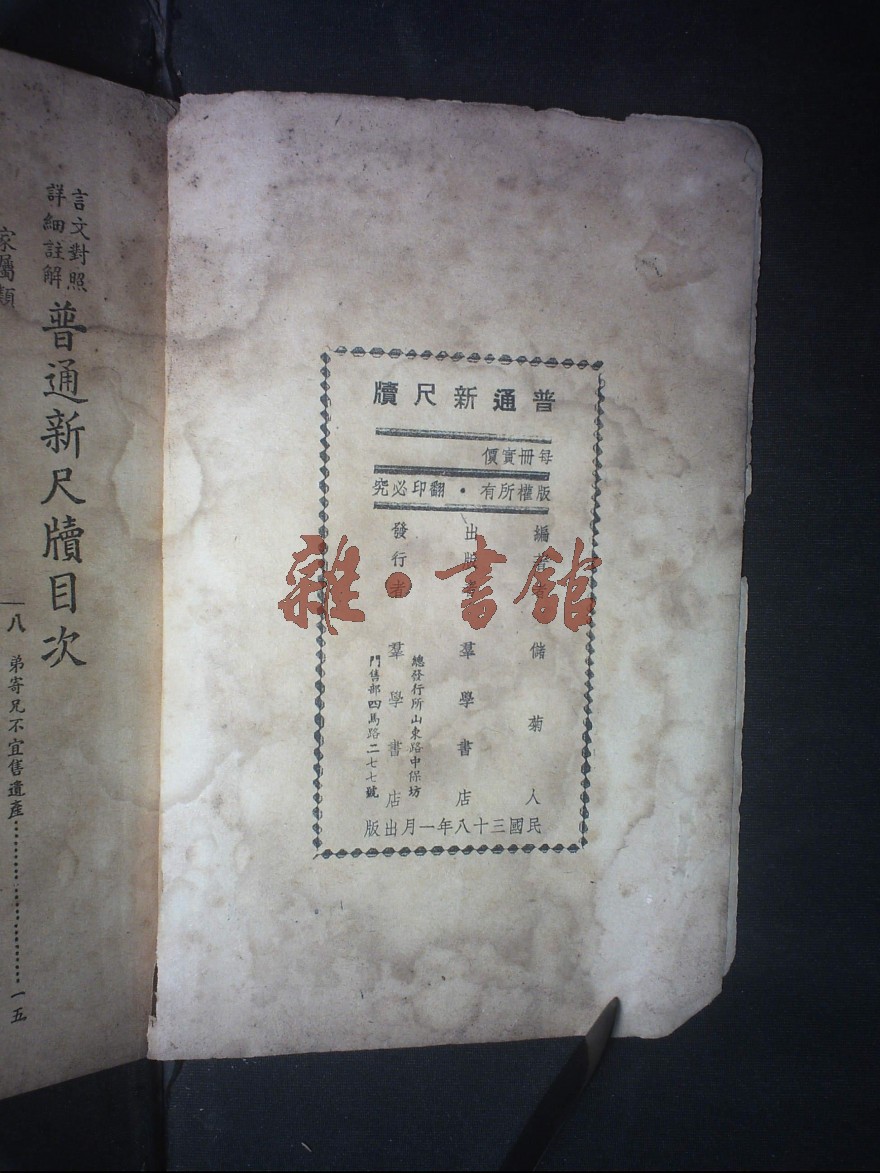 普通新尺牘
每冊實價
版權所有・翻印必究
編著者 儲菊人
出版者 羣學書店
發行者 羣學書店
總發行所山東路中保坊
門售部四馬路二七七號
民國三十八年一月出版
雜・書館
言文對照
詳細註解
普通新尺牘目次
家屬類
一八 弟寄兄不宜售遺產⋯⋯⋯⋯⋯⋯一五